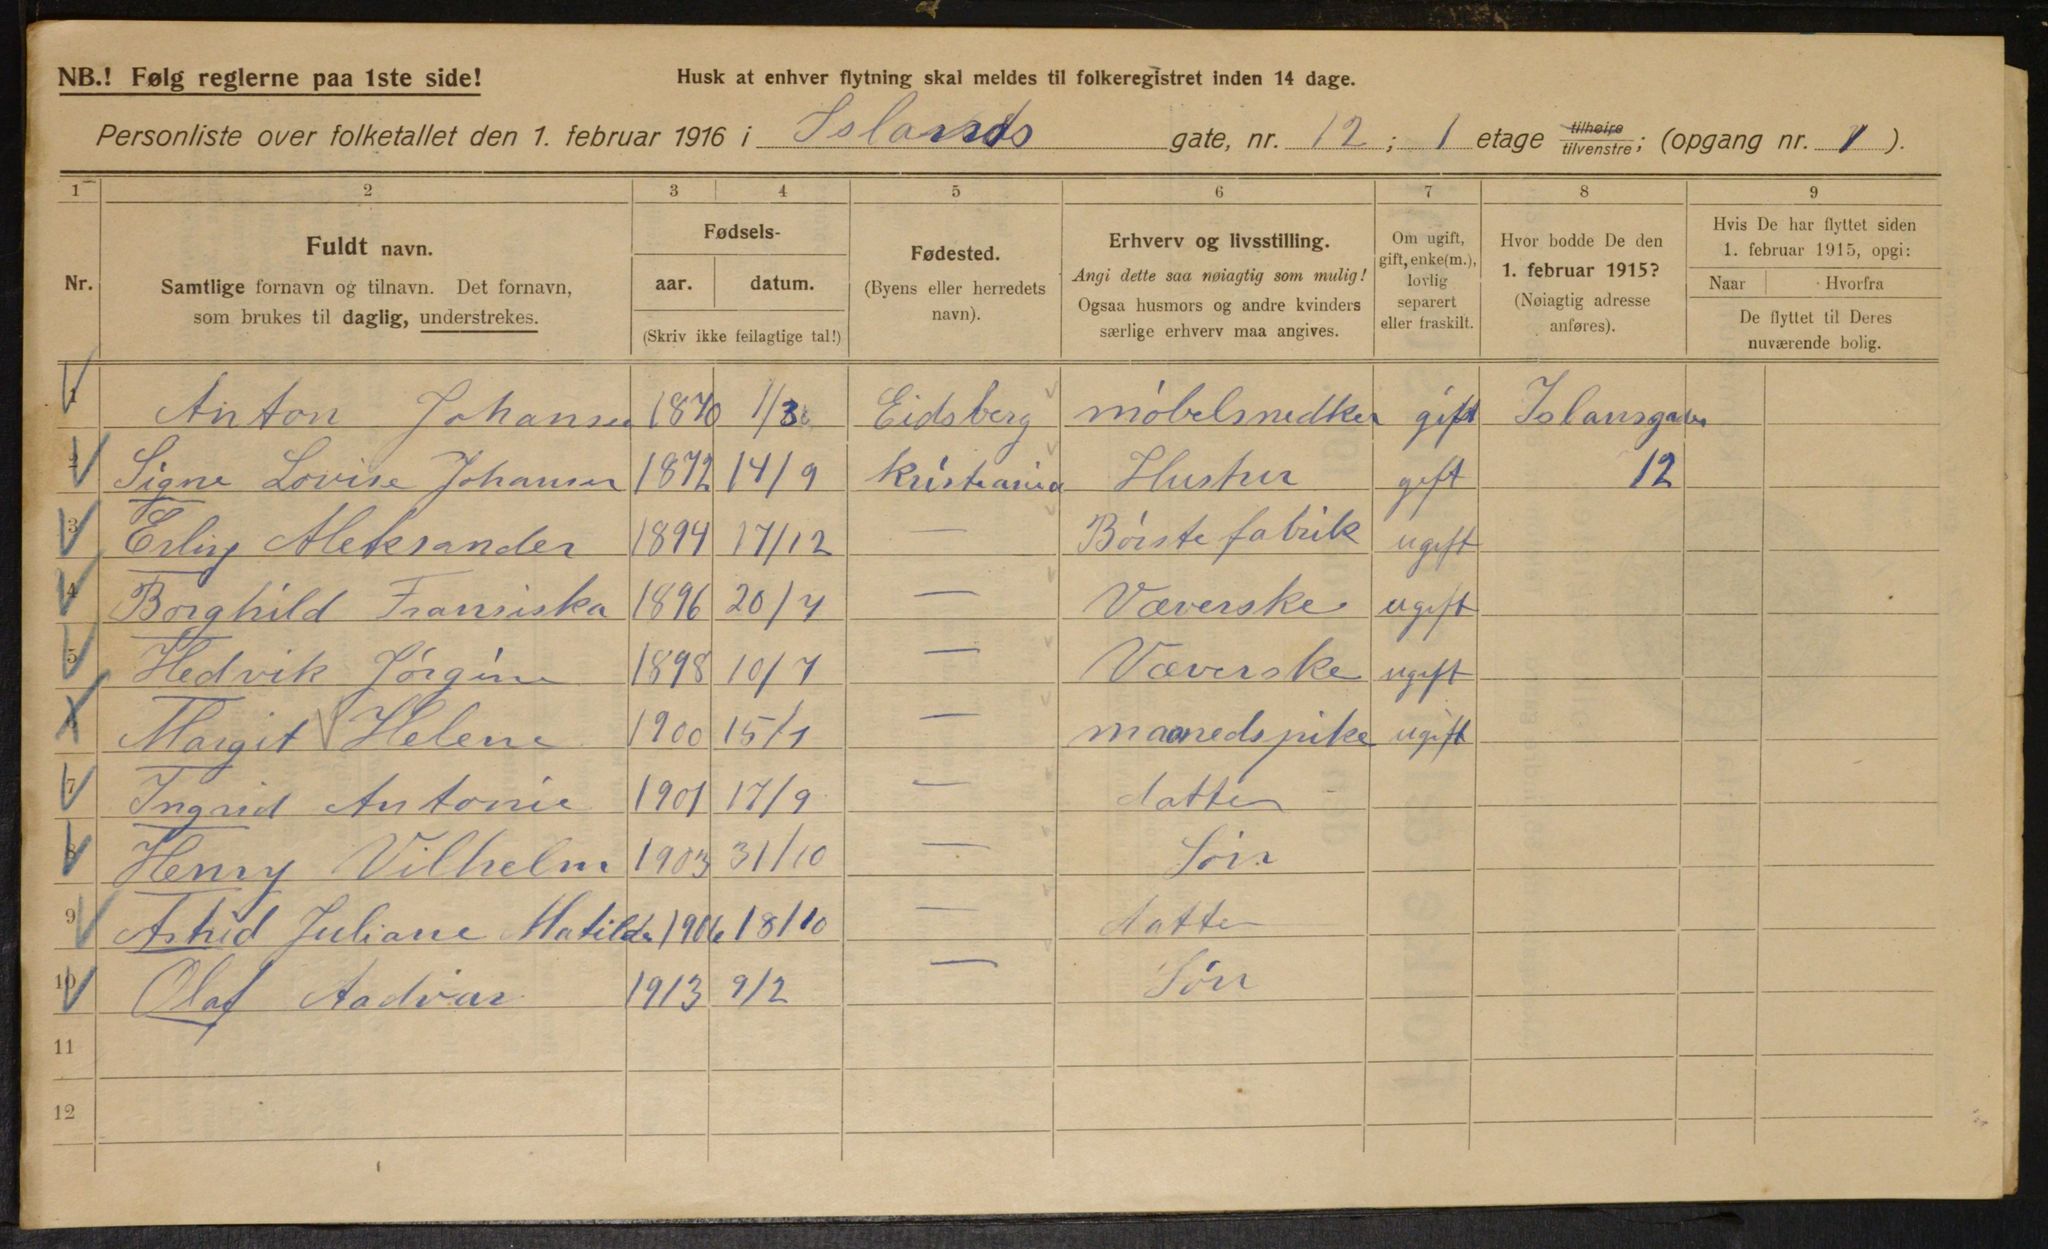 NB.! Følg reglerne paa 1ste side!
Husk at enhver flytning skal meldes til folkeregistret inden 14 dage.
Personliste over folketallet den 1. februar 1916 i Islands gate, nr. 12 ; 1 etage tilhøire tilvenstre; (opgang nr. 1 ).
1 2 3 4 5 6 7 8 9
Nr.
Fuldt navn.
Samtlige fornavn og tilnavn. Det fornavn,
som brukes til daglig, understrekes.
Fødsels-
aar. datum.
(Skriv ikke feilagtige tal!)
Fødested.
(Byens eller herredets
navn).
Erhverv og livsstilling.
Angi dette saa nøiagtig som mulig!
Ogsaa husmors og andre kvinders
særlige erhverv maa angives.
Om ugift,
gift, enke(m.),
lovlig
separert
eller fraskilt.
Hvor bodde De den
1. februar 1915?
(Nøiagtig adresse
anføres).
Hvis De har flyttet siden
1. februar 1915, opgi:
Naar Hvorfra
De flyttet til Deres
nuværende bolig.
1 Anton Johansen 1870 1/3 Eidsberg møbelsnedker gift Islansgaten
2 Signe Lovise Johansen 1872 14/9 Kristiania Hustru gift 12
3 Erling Aleksander 1894 17/12 — Børste fabrik ugift
4 Borghild Fransiska 1896 20/7 — Væverske ugift
5 Hedvik Jørgine 1898 10/7 — Væverske ugift
Margit Helene 1900 15/1 — maanedspike ugift
7 Ingrid Antonie 1901 17/9 — datter
8 Henry Vilhelm 1903 31/10 — Søn
9 Astrid Juliane Matilde 1906 18/10 — datter
10 Olaf Aadvar 1913 9/2 — Søn
11
12